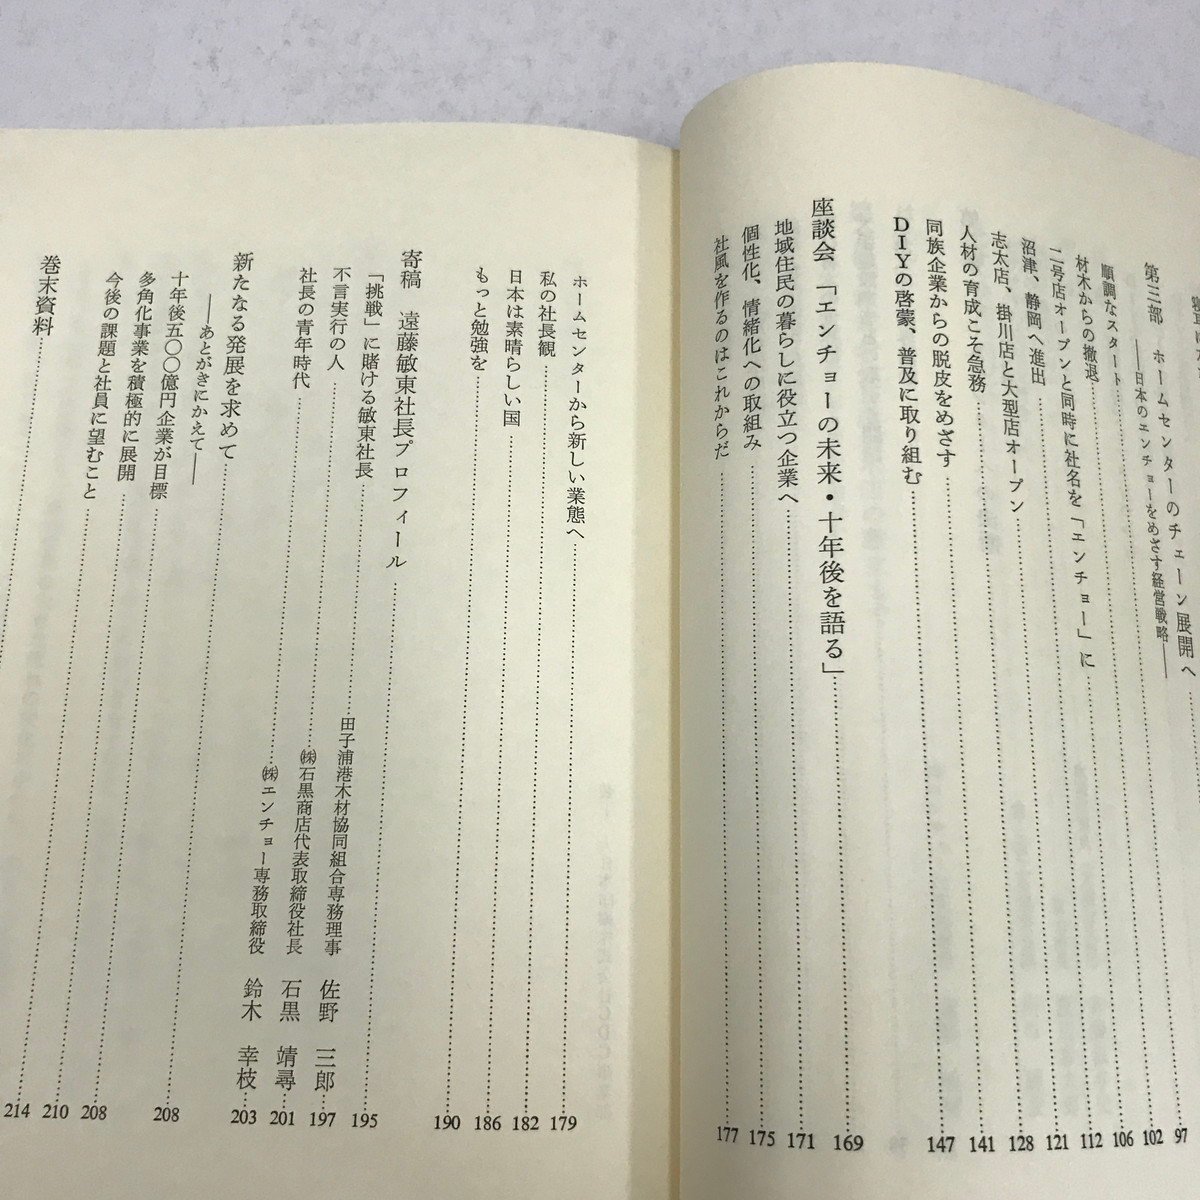 第三部 ホームセンターのチェーン展開へ
――日本のエンチョーをめざす経営戦略――
順調なスタート……97
材木からの撤退……102
二号店オープンと同時に社名を「エンチョー」に……106
沼津、静岡へ進出……112
志太店、掛川店と大型店オープン……121
人材の育成こそ急務……128
同族企業からの脱皮をめざす……141
DIYの啓蒙、普及に取り組む……147
座談会 「エンチョーの未来・十年後を語る」……169
地域住民の暮らしに役立つ企業へ……171
個性化、情緒化への取組み……175
社風を作るのはこれからだ……177
ホームセンターから新しい業態へ……179
私の社長観……182
日本は素晴らしい国……186
もっと勉強を……190
寄稿 遠藤敏東社長プロフィール……195
「挑戦」に賭ける敏東社長……田子浦港木材協同組合専務理事 佐野 三郎…197
不言実行の人……㈱石黒商店代表取締役社長 石黒 靖尋…201
社長の青年時代……㈱エンチョー専務取締役 鈴木 幸枝…203
新たなる発展を求めて……208
――あとがきにかえて――
十年後五〇〇億円企業が目標……208
多角化事業を積極的に展開……210
今後の課題と社員に望むこと……214
巻末資料……